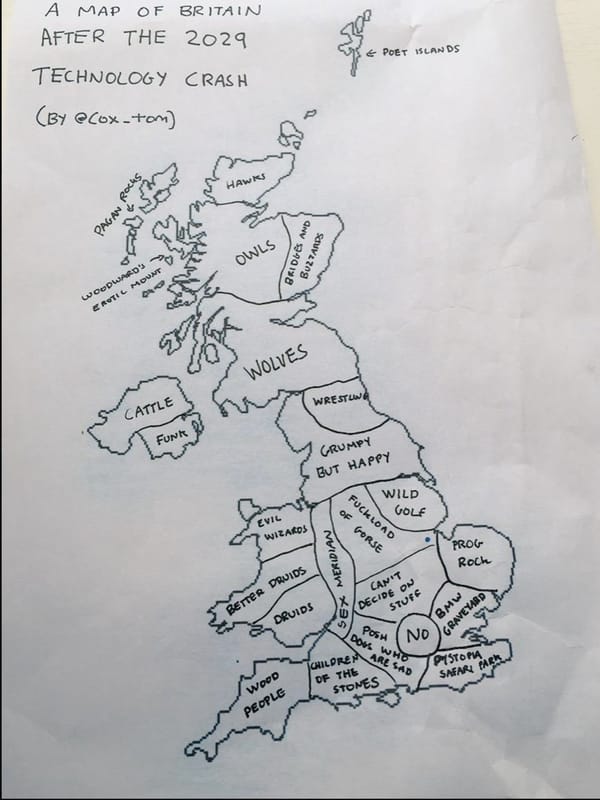 A MAP OF BRITAIN
AFTER THE 2029
TECHNOLOGY CRASH
(BY @COX_TOM)
← POET ISLANDS
HAWKS
PAGAN ROCKS
OWLS
BRIDGES AND
BUZZARDS
WOODWARD'S
EROTIC MOUNT
WOLVES
CATTLE
FUNK
WRESTLING
GRUMPY
BUT HAPPY
WILD
GOLF
FUCKLOAD
OF
GORSE
EVIL
WIZARDS
PROG
ROCK
SEX MERIDIAN
BETTER DRUIDS
DRUIDS
CAN'T
DECIDE ON
STUFF
BMW
GRAVEYARD
NO
POSH
DOGS WHO
ARE SAD
DYSTOPIA
SAFARI PARK
CHILDREN
OF THE
STONES
WOOD
PEOPLE